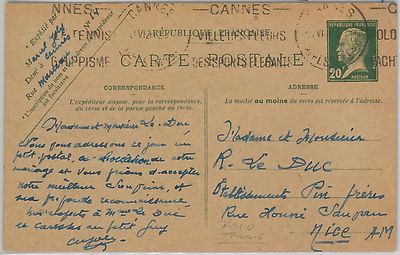 NNES CANNES CANNES
TENNIS VILLE DE FLEURS POLO
HIPPISME DES SPORTS ÉLÉGANTS YACHT
RÉPUBLIQUE FRANÇAISE
CARTE POSTALE
Expédié par
Marcel
Dem à Cannes
Rue
20
PASTEUR
CORRESPONDANCE
L'expéditeur dispose, pour la correspondance,
du verso et de la partie gauche du recto.
ADRESSE
La moitié au moins du recto est réservée à l'adresse.
Madame et Monsieur Le Duc
Nous vous adressons ce jour un
petit postal, à l'occasion de votre
mariage et vous prions d'accepter
notre meilleur souvenir, et
ma profonde reconnaissance
Mes respects à Mme Le Duc
et caresses au petit Guy
Madame et Monsieur
R. Le Duc
Établissements Pin frères
Rue Honoré Sauvan
Nice A-M
POLO
TENNIS